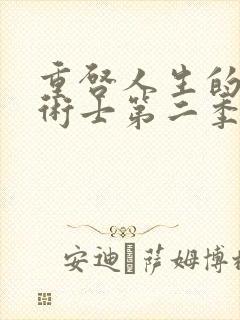 重啓人生的
術士第二季
安迪·薩姆博